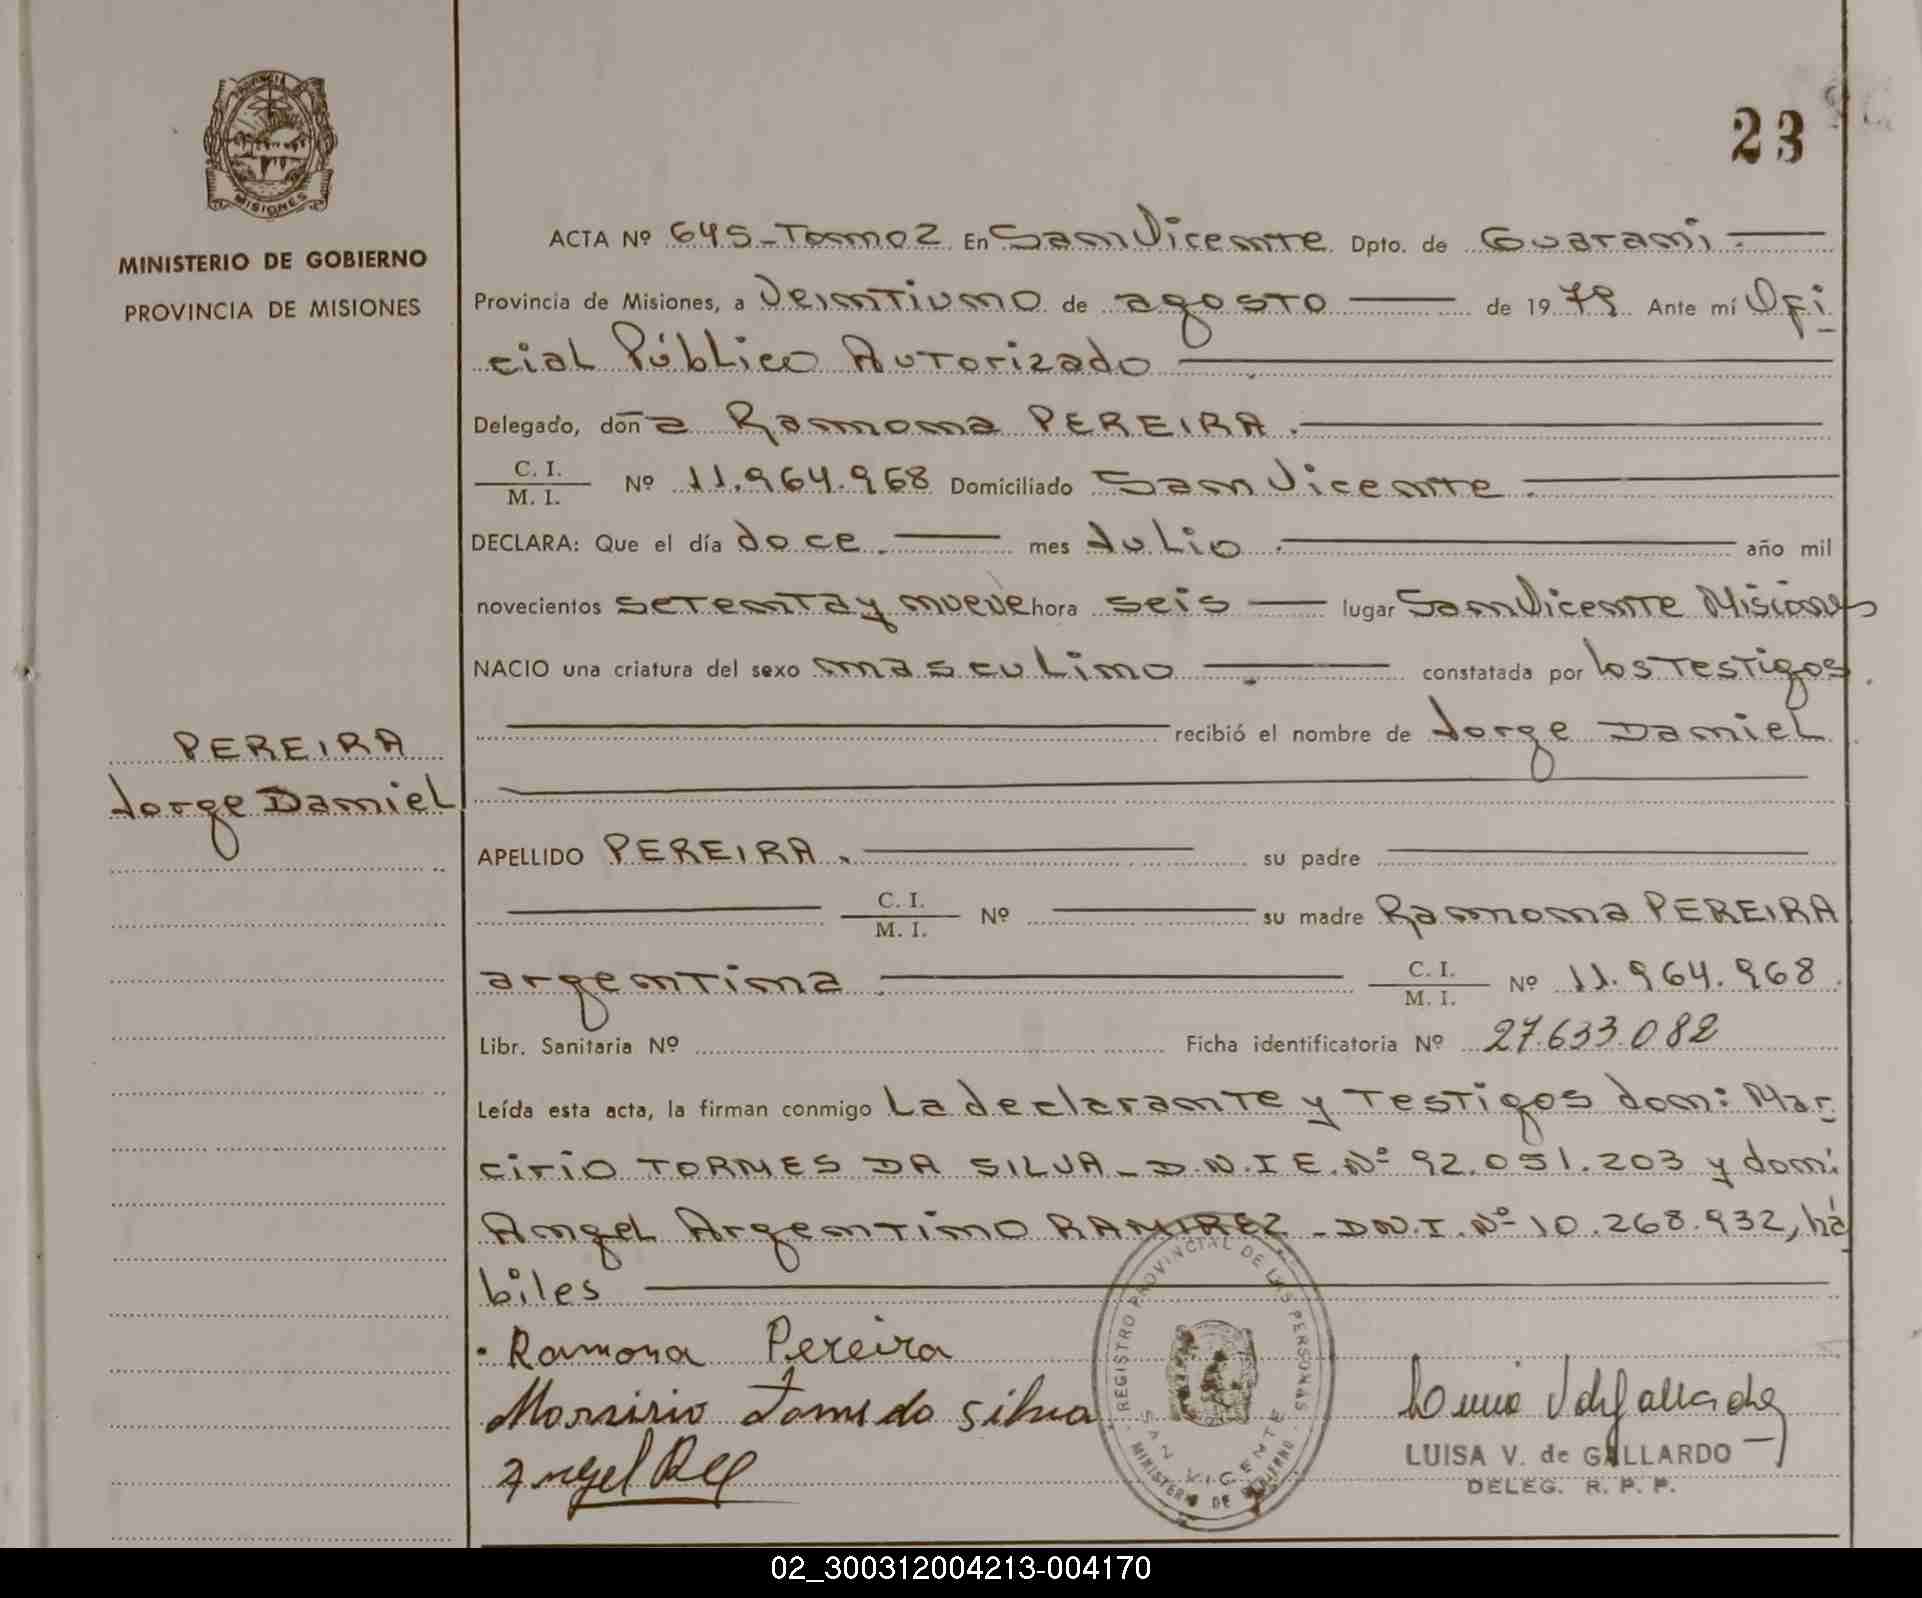 23
PROVINCIA
MISIONES
MINISTERIO DE GOBIERNO
PROVINCIA DE MISIONES
ACTA Nº 645-Tomo 2 En San Vicente Dpto. de Guaraní.
Provincia de Misiones, a Veintiuno de agosto de 1979 Ante mí Ofi
cial Público Autorizado
Delegado, doña Ramona PEREIRA.
C. I.
M. I. Nº 11.964.968 Domiciliado San Vicente.
DECLARA: Que el día doce. mes Julio. año mil
novecientos setenta y nueve hora seis lugar San Vicente Misiones
NACIO una criatura del sexo masculino constatada por los Testigos
recibió el nombre de Jorge Daniel
PEREIRA
Jorge Daniel
APELLIDO PEREIRA. su padre
C. I.
M. I. Nº su madre Ramona PEREIRA
argentina. C. I.
M. I. Nº 11.964.968
Libr. Sanitaria Nº Ficha identificatoria Nº 27.633.082
Leída esta acta, la firman conmigo La declarante y Testigos don: Mar
cirio TORNES DA SILVA-D.N.I E.Nº 92.051.203 y don:
Angel Argentino RAMIREZ-DN.I.Nº 10.268.932, há
biles
Ramona Pereira
Marsirio Tornes da silva
Angel
REGISTRO PROVINCIAL DE LAS PERSONAS
SAN VICENTE
MINISTERIO DE GOBIERNO
LUISA V. de GALLARDO
DELEG. R. P. P.
02_300312004213-004170